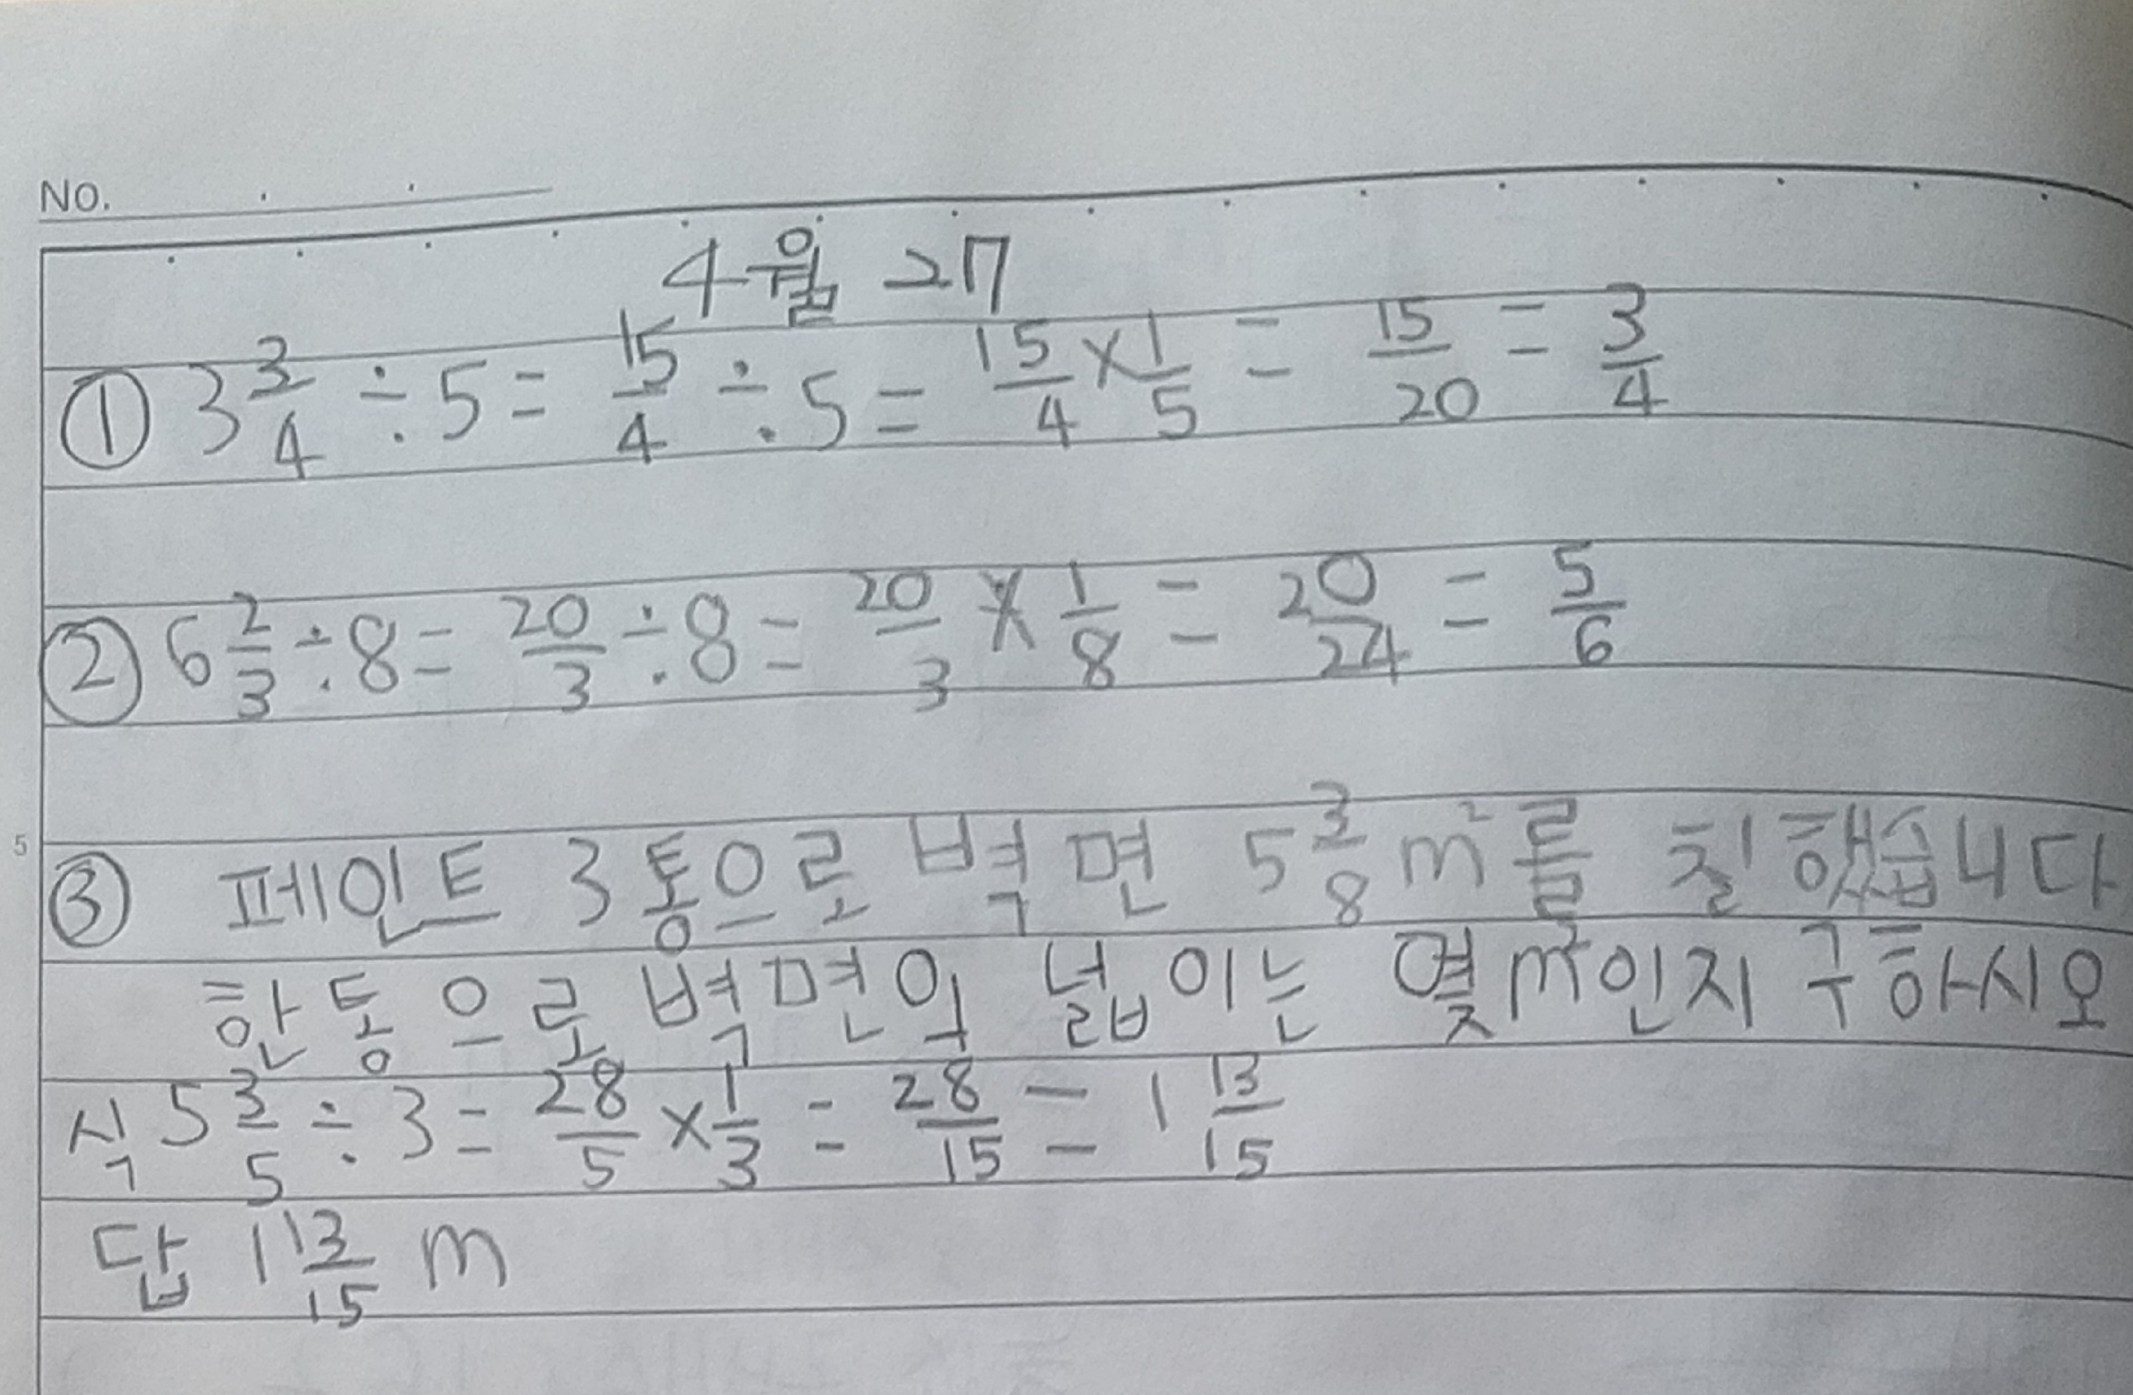 NO.
4월 27
① 3 3/4 ÷ 5 = 15/4 ÷ 5 = 15/4 × 1/5 = 15/20 = 3/4
② 6 2/3 ÷ 8 = 20/3 ÷ 8 = 20/3 × 1/8 = 20/24 = 5/6
5
③ 페인트 3통으로 벽면 5 3/8 m²를 칠했습니다
한통으로 벽면의 넓이는 몇 m²인지 구하시오
식 5 3/5 ÷ 3 = 28/5 × 1/3 = 28/15 = 1 13/15
답 1 13/15 m